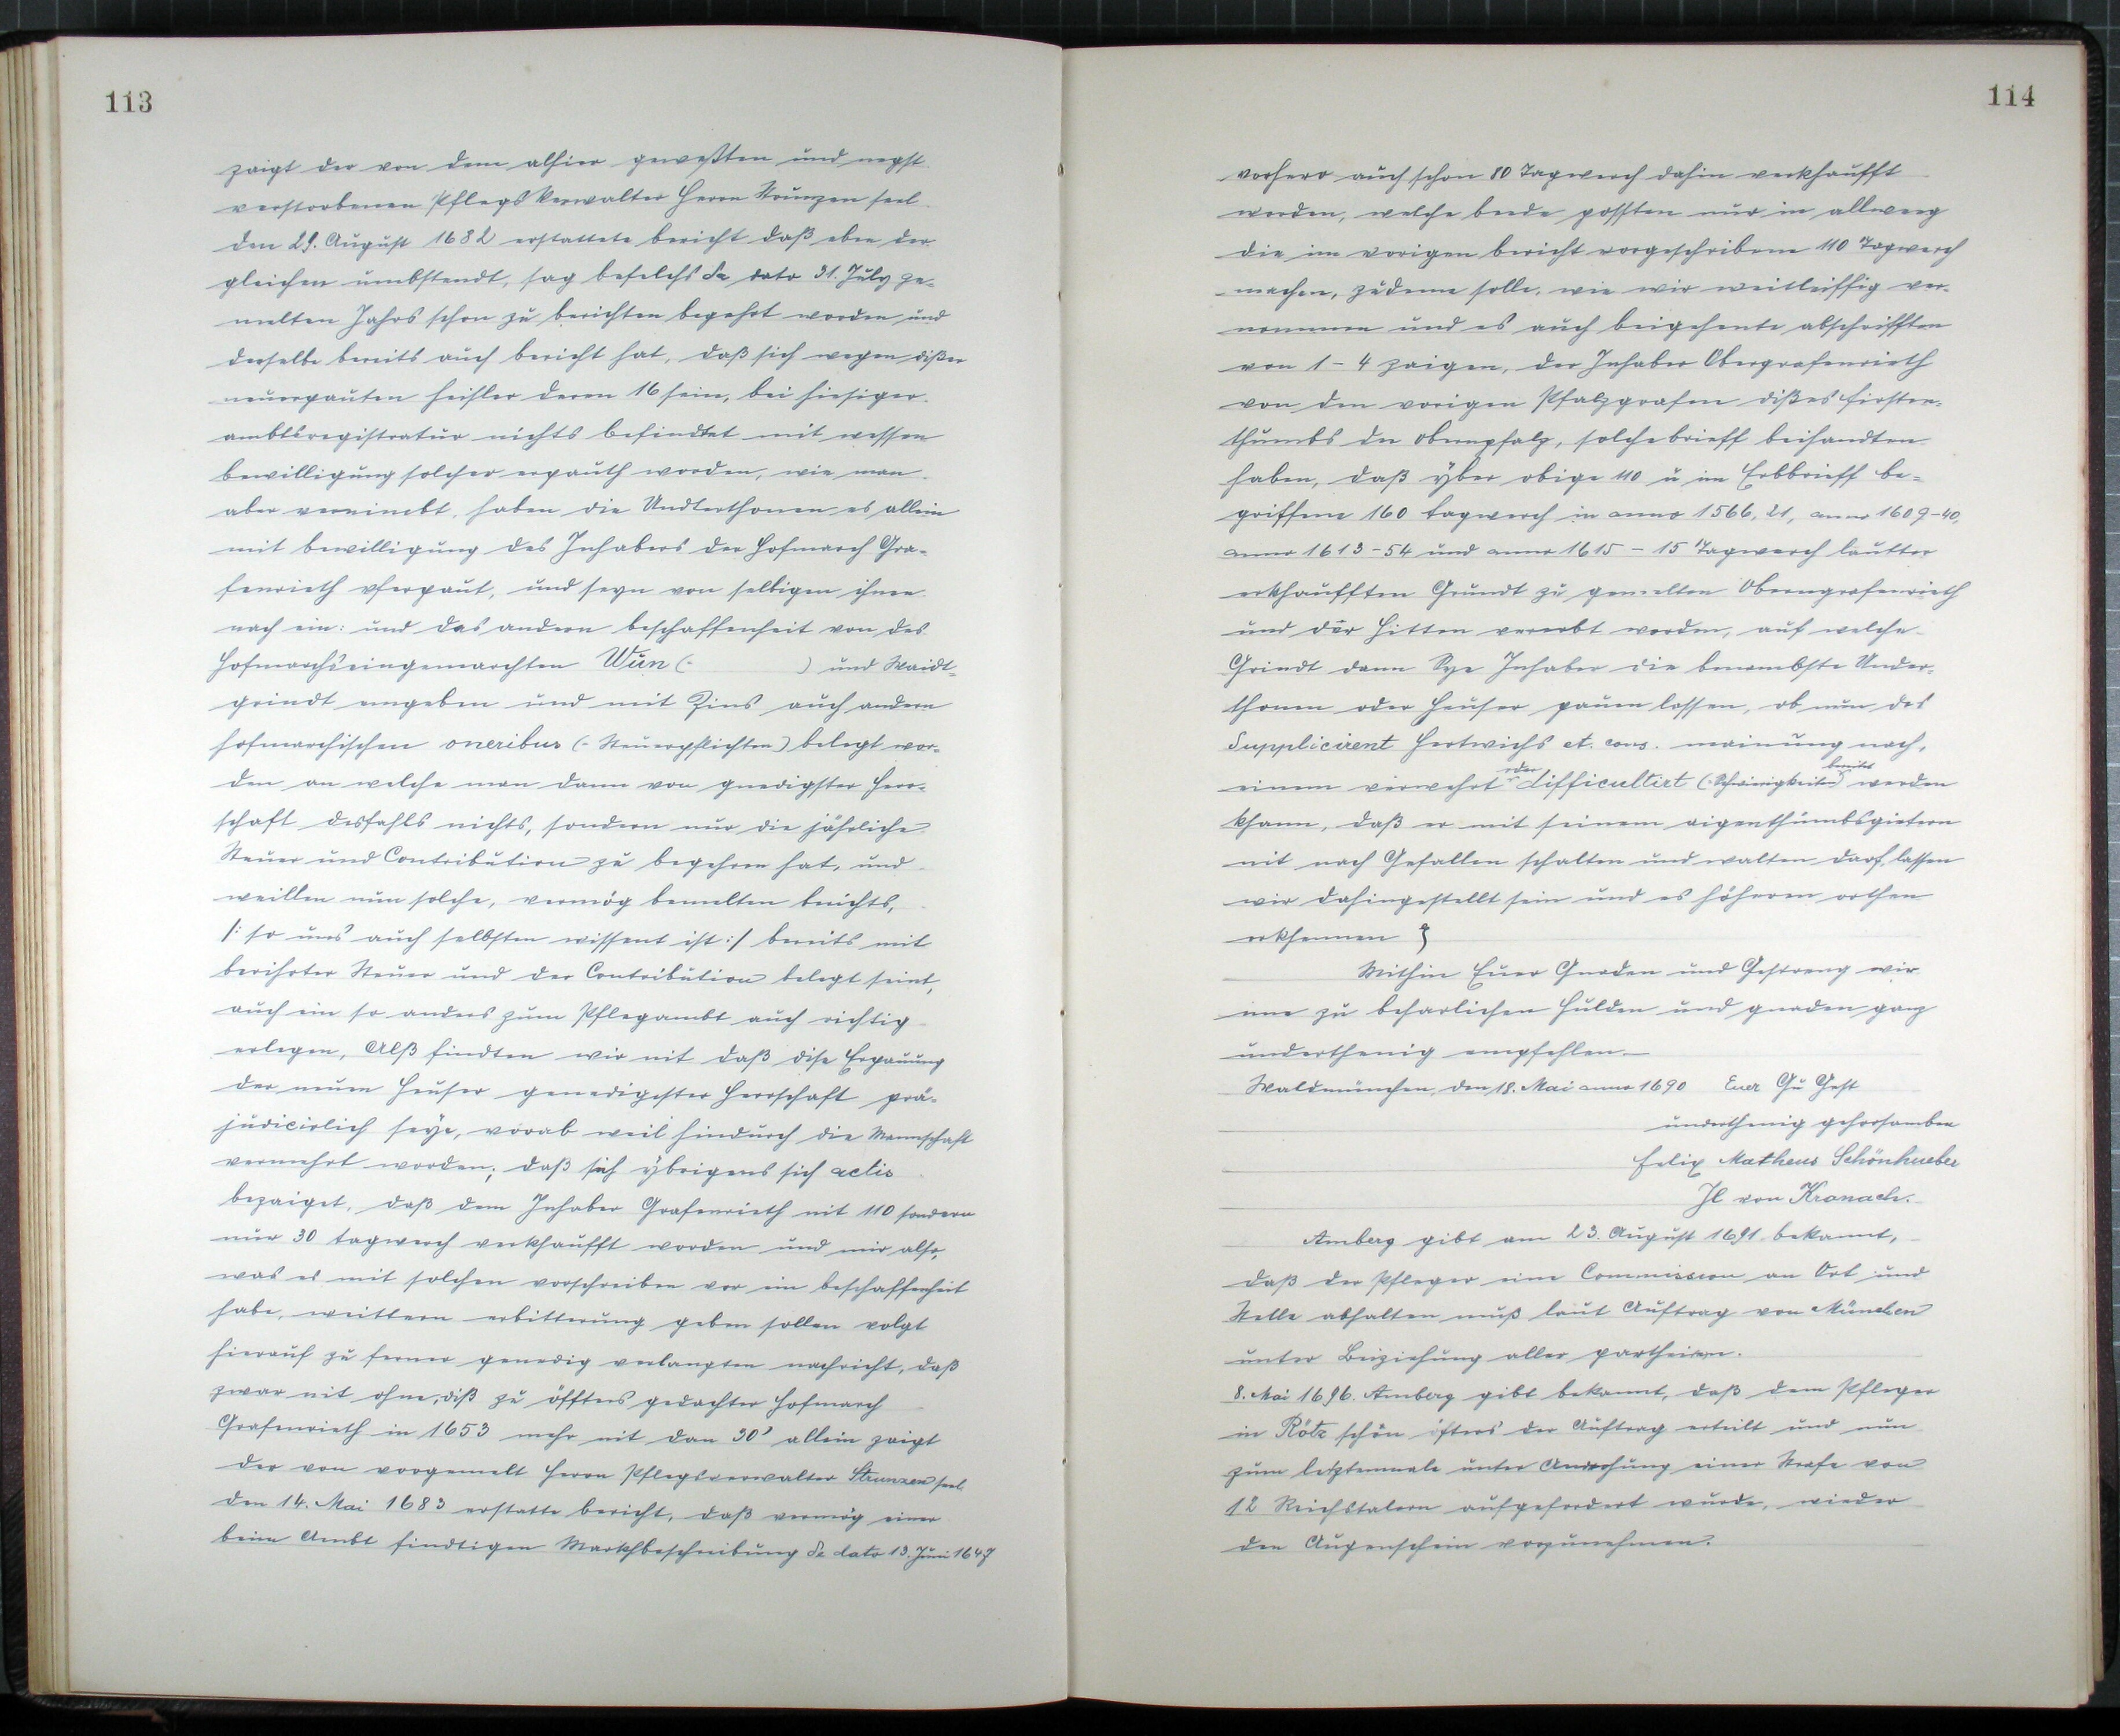 113
zaigt der von dem alhier gewesten und negst
verstorbenen Pflegs Verwalter Herrn Strunzen seel.
den 29. August 1682 erstattete bericht daß eben der
gleichen umbstendt, sag befelchs de dato 31. July ge-
melten Jahrs schon zu berichten begehrt worden und
derselbe bereits auch bericht hat, daß sich wegen dißer
neuerpauten heisler deren 16 sein, bei hiesiger
ambtsregistratur nichts befindtet mit wessen
bewilligung solcher erpauth worden, wie man
aber vernimbt, haben die Undterthonen es allein
mit bewilligung des Inhabers der Hofmarch Gra-
fenrieth yferpaut, und seyn von selbigen ihnen
nach ein: und das andern beschaffenheit von des
Hofmarchseingemarchten Wün (- ) und Waidt-
grindt eingeben und mit Zins auch andern
hofmarchischen oneribus (- Steuerpflichten) belegt wor-
den an welche man dann von gnedigster Herr-
schaft desfahls nichts, sondern nur die jährliche
Steuer und Contribution zu begehren hat, und
weillen nun solche, vermög bemelten berichts,
/: so uns auch selbsten wissent ist :/ bereits mit
berihrter Steuer und der Contribution belegt seint,
auch ein so anders zum Pflegambt auch richtig
erlegen, Alß findten wir nit daß dise Erpauung
der neuen Heuser genedigster Herrschaft prä-
judicirlich seye, vorab weil hindurch die Mannschaft
vermehrt worden; daß sich ybrigens sich actis
bezaiget, daß dem Inhaber Grafenrieth nit 110 sondern
nur 30 tagwerch verkhaufft worden und wir also,
was es mit solchen vorschreiben vor ein beschaffenheit
habe, weittern erbitterung geben sollen volgt
hierauf zu ferner genedig verlangten nachricht, daß
zwar nit ohne, diß zu öffters gedachter Hofmarch
Grafenrieth in 1653 mehr nit dan 30' allein zaigt
der von vorgemelt Herrn Pflegsverwalter Strunzen seel.
den 14. Mai 1683 erstatte bericht, daß vermög einer
beim Ambt findtigen Markhbeschreibung de dato 13. Juni 1647
114
vorhero auch schon 80 Tagwerch dahin verkhaufft
worden, welche beede possten nur in allweeg
die im vorigen bericht vorgeschribene 110 Tagwerch
machen, zudeme solle, wie wir weitleiffig ver-
nommen und es auch beigehente abschrifften
von 1-4 zaigen, der Inhaber Obergrafenrieth
von den vorigen Pfalzgrafen dißes firsten-
thumbs der obernpfalz, solche brieff beihandten
haben, daß yber obige 110 u im Erbbrieff be-
griffene 160 tagwerch in anno 1566, 21, anno 1609-40,
anno 1613-54 und anno 1615 - 15 Tagwerch lautter
erkhaufften Grundt zu gemelten Oberngrafenrieth
und der Hitten vererbt worden, auf welche
Grindt dann Sye Inhaber die benambste Under-
thonen oder Heuser pauen lassen, ob nun des
Supplicirent Hertwichs et. cons. mainung nach,
einem verwehrt oder difficultirt (-Schwierigkeiten) bereitet werden
khann, daß er mit seinem aigenthumbsgietern
nit nach Gefallen schalten und walten darf, lassen
wir dahingestellt sein und es höheren orthen
erkhennen
Mithin Euer Gnaden und Gestreng wir
uns zu beharlichen Hulden und gnaden ganz
underthenig empfehlen.
Waldmünchen, den 18. Mai anno 1690 Euer Gn Gest
underthenig gehorsamben
Felix Matheus Schönhueber
Jl von Kronach.
Amberg gibt am 23. August 1691 bekannt,
daß der Pfleger eine Commission an Ort und
Stelle abhalten muß laut Auftrag von München
unter Beiziehung aller partheien.
8. Mai 1696. Amberg gibt bekannt, daß dem Pfleger
in Rötz schon öfters der Auftrag erteilt und nun
zum letztenmale unter Androhung einer Strafe von
12 Reichstalern aufgefordert wurde, wieder
den Augenschein vorzunehmen.